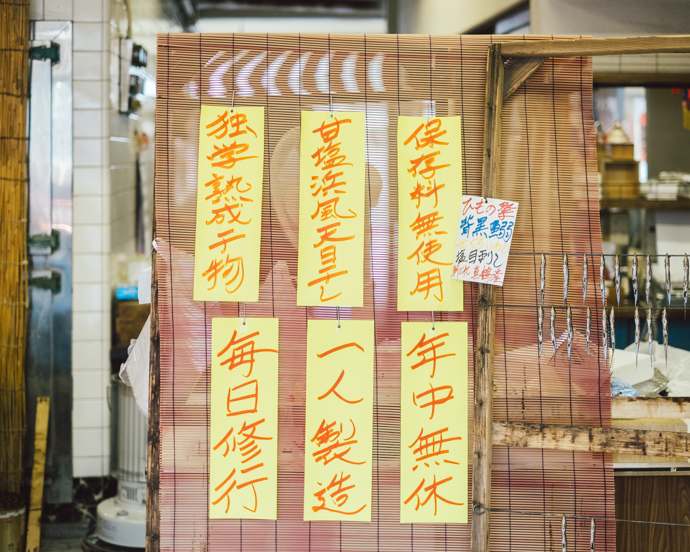 保存料無使用
甘塩浜風天日干し
独学熟成干物
年中無休
一人製造
毎日修行
ひもの
背黒鰯
目刺し